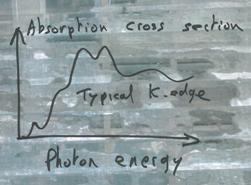 Absorption cross section
Typical K.edge
Photon energy